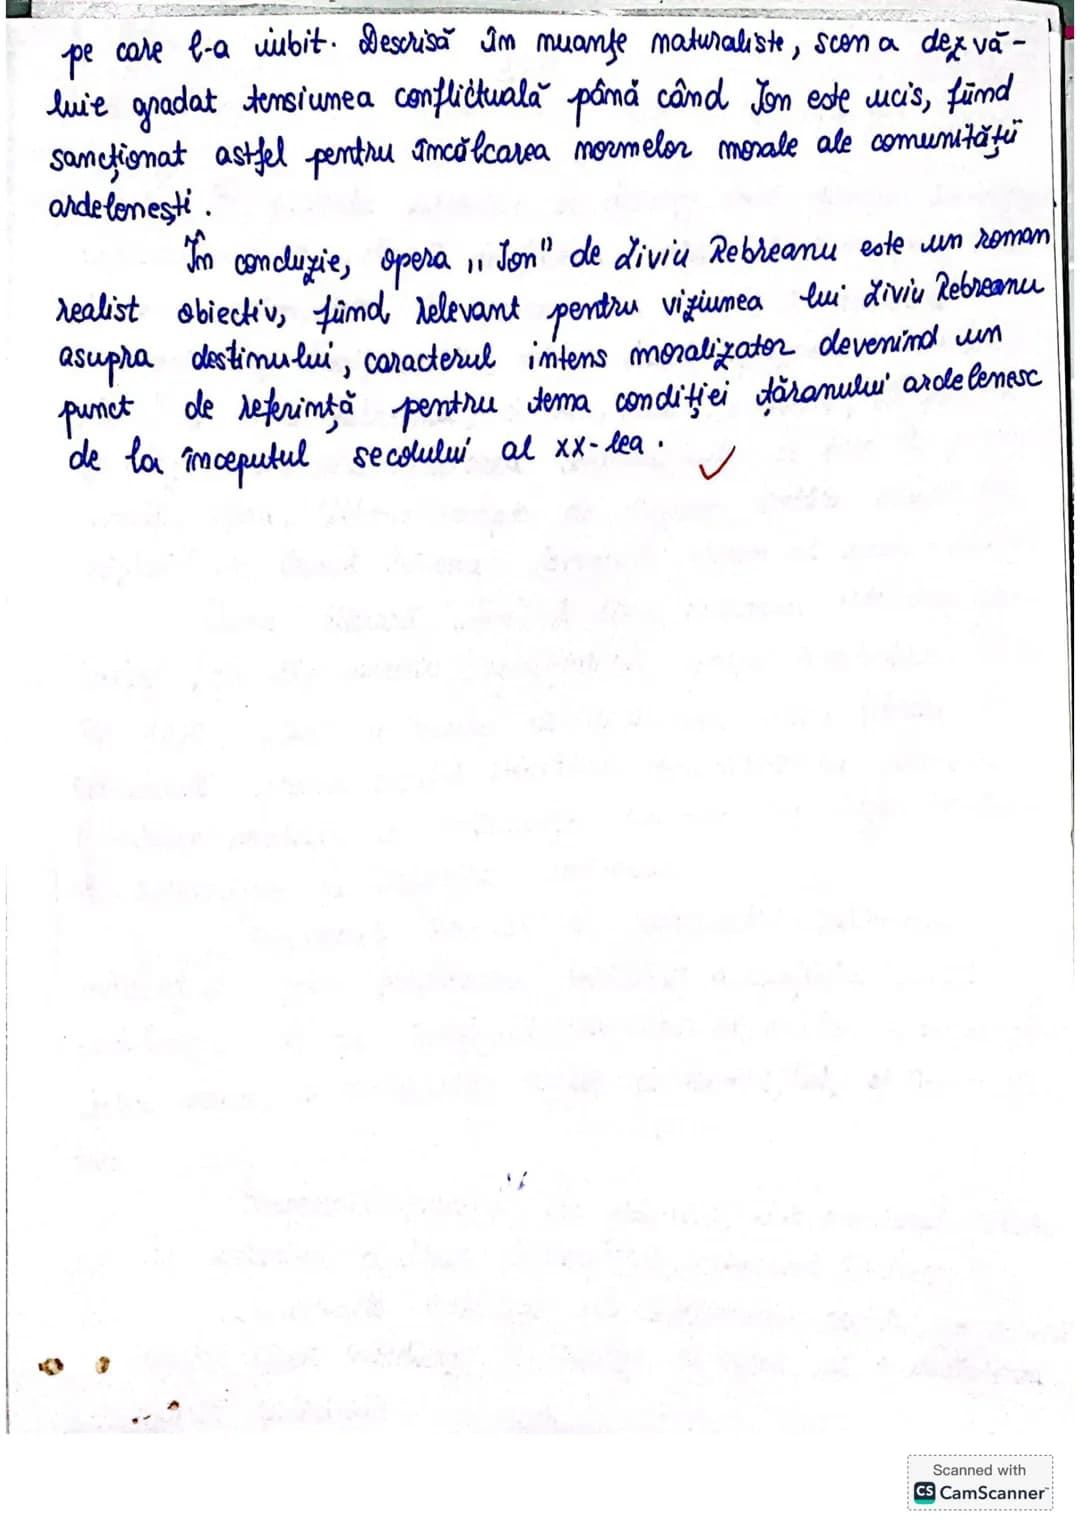 pe care l-a iubit. Descrisă în nuanțe naturaliste, scena dezvă-
luie gradat tensiunea conflictuală până când Ion este ucis, fiind
sancționat astfel pentru încălcarea normelor morale ale comunității
ardelenești.
În concluzie, opera „Ion" de Liviu Rebreanu este un roman
realist obiectiv, fiind relevant pentru viziunea lui Liviu Rebreanu
asupra destinului, caracterul intens moralizator devenind un
punct de referință pentru tema condiției țăranului ardelenesc
de la începutul secolului al XX-lea.
Scanned with
CS CamScanner